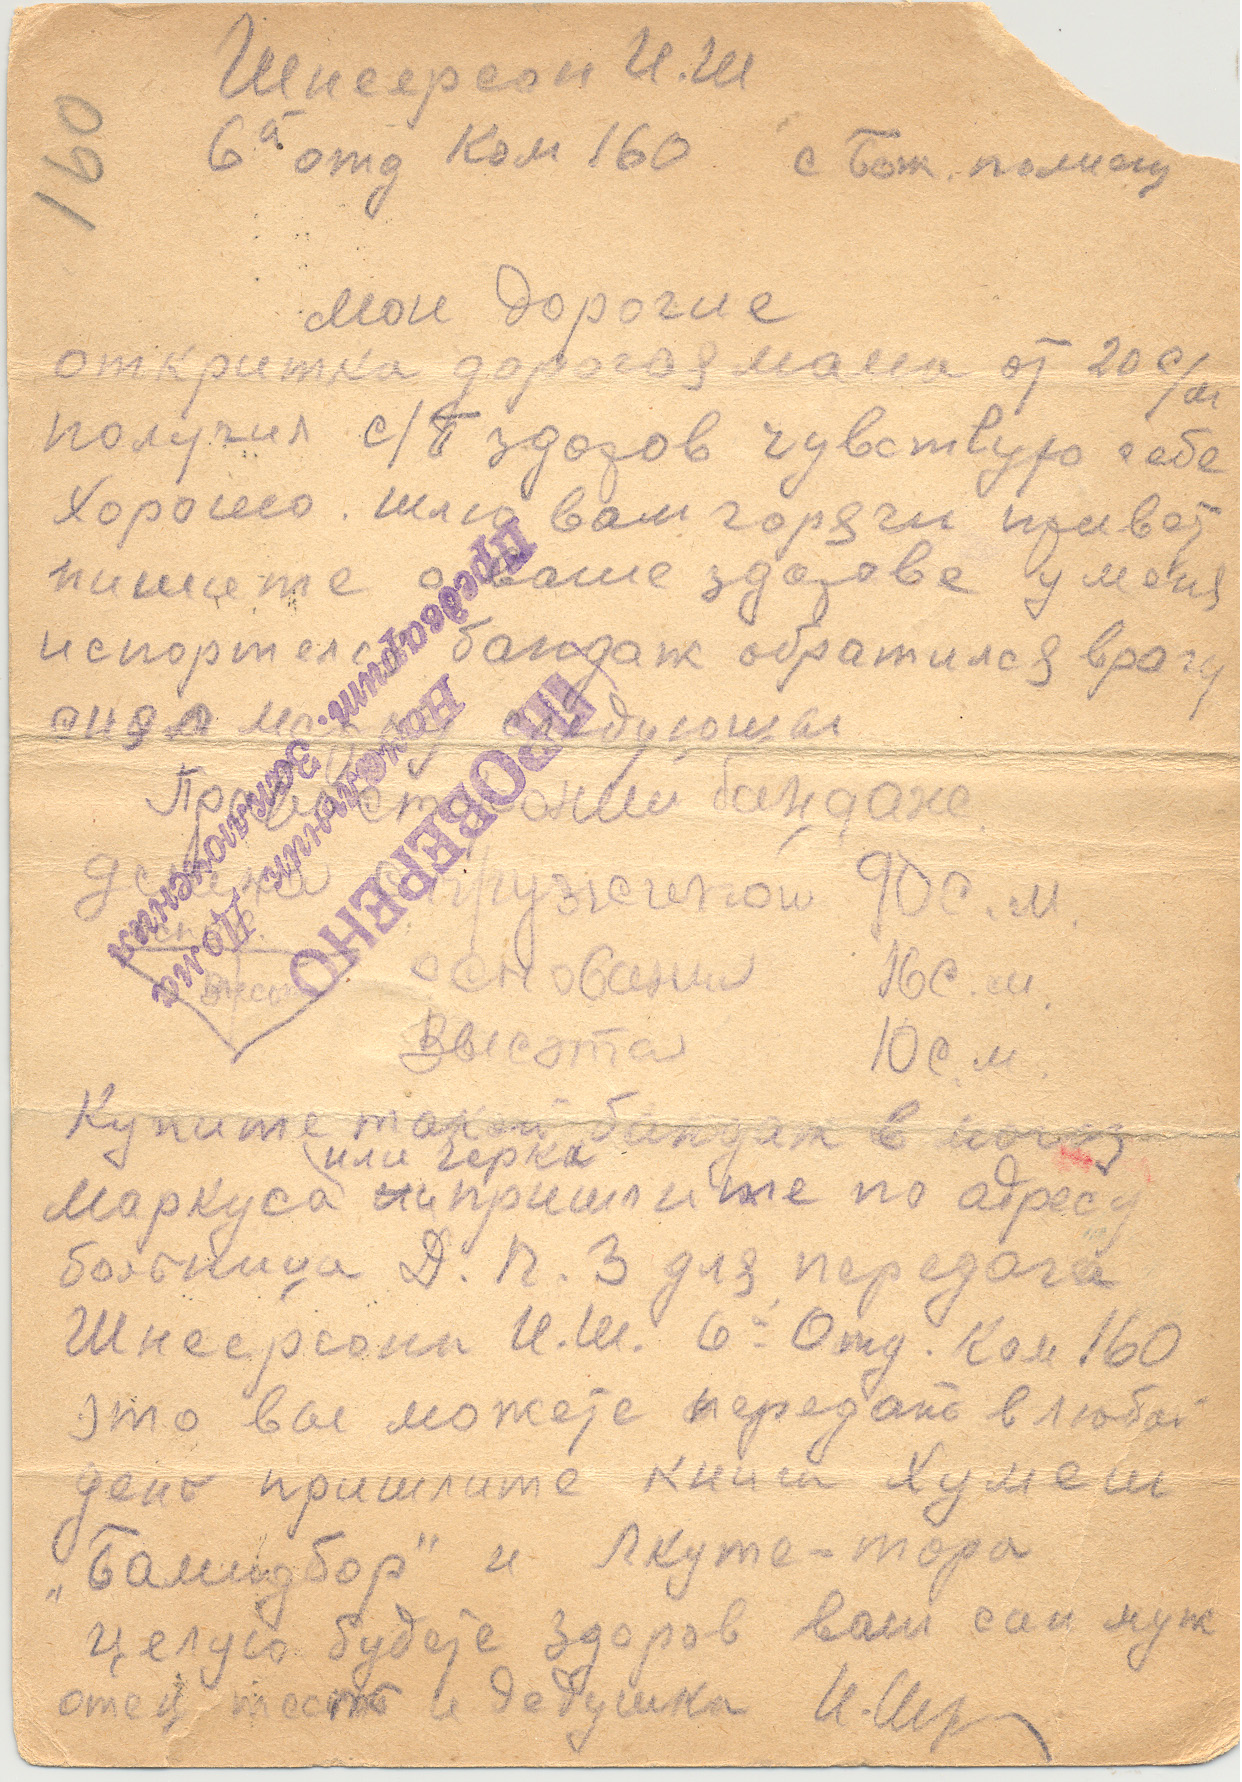 160
Шнеерсон И.Ш
6й отд Ком 160 с Бож. помощ
мои дорогие
откритка дорогая мама от 20 с/м
получил с/Т здоров чувствую себе
Хорошо. шлю вам горячи привет
пишите о ваше здорове у меня
испортелся бандаж обратился врачу
он дал марку следующая
бандажа.
пружиной 90 с.м.
основании 16 с.м.
Высота 10 с.м.
Купите такой бандаж в магаз
или черка
Маркуса и пришлите по адресу
больница Д.П.З для передача
Шнеерсони И.Ш. 6й Отд. Ком 160
это вы можете передать в любой
день пришлите книги Хумеш
„Бамидбор" и Лкуте-тора
целую будете здоров ваш сан муж
отец тесть и дедушка И.Шн
Предварит. Заключения
Начальник Дома
ПРОВЕРЕНО